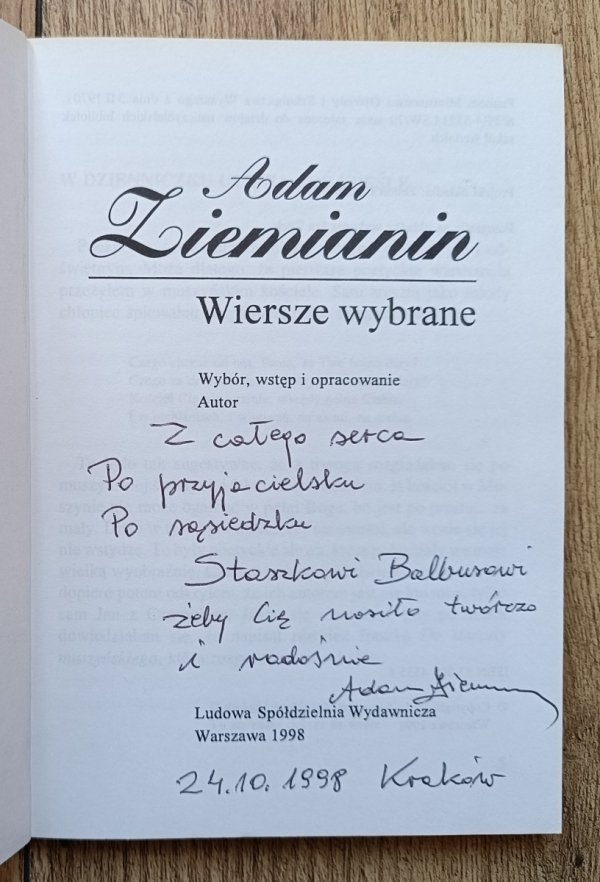 Adam
Ziemianin
Wiersze wybrane
Wybór, wstęp i opracowanie
Autor
Z całego serca
Po przyjacielsku
Po sąsiedzku
Staszkowi Balbusowi
żeby Cię nosiło twórczo
i radośnie
Adam Ziem
Ludowa Spółdzielnia Wydawnicza
Warszawa 1998
24.10.1998 Kraków